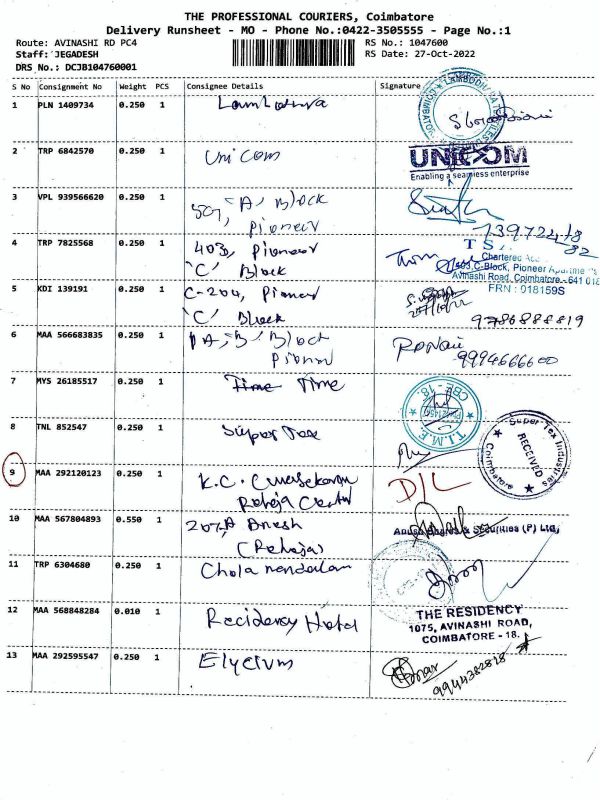 THE PROFESSIONAL COURIERS, Coimbatore
Delivery Runsheet - MO - Phone No.:0422-3505555 - Page No.:1
Route: AVINASHI RD PC4 RS No.: 1047600
Staff: JEGADESH RS Date: 27-Oct-2022
DRS No.: DCJB104760001
S No Consignment No Weight PCS Consignee Details Signature
1 PLN 1409734 0.250 1
2 TRP 6842570 0.250 1 Unicom
UNICOM
Enabling a seamless enterprise
3 VPL 939566620 0.250 1 'A' Block
Pioneer
4 TRP 7825568 0.250 1 403, Pioneer
'C' Block
T S
Chartered
403,C-Block, Pioneer Apartments
Avinashi Road, Coimbatore - 641 018
FRN : 018159S
5 KDI 139191 0.250 1 C-204, Pioneer
'C' Block
9786888819
6 MAA 566683835 0.250 1 'B' Block
Pioneer
9994666600
7 MYS 26185517 0.250 1 Time Time
T.I.M.E. CBE - 18.
8 TNL 852547 0.250 1 Super Tex
Super Tex Industries
RECEIVED
Coimbatore
9 MAA 292120123 0.250 1 K.C.
Raheja Center
D/L
10 MAA 567804893 0.550 1
(Raheja)
Shares & Securities (P) Ltd.,
11 TRP 6304680 0.250 1 Cholamandalam
12 MAA 568848284 0.010 1 Recidency Hotel
THE RESIDENCY
1075, AVINASHI ROAD,
COIMBATORE - 18.
13 MAA 292595547 0.250 1 Elycium
9944382828